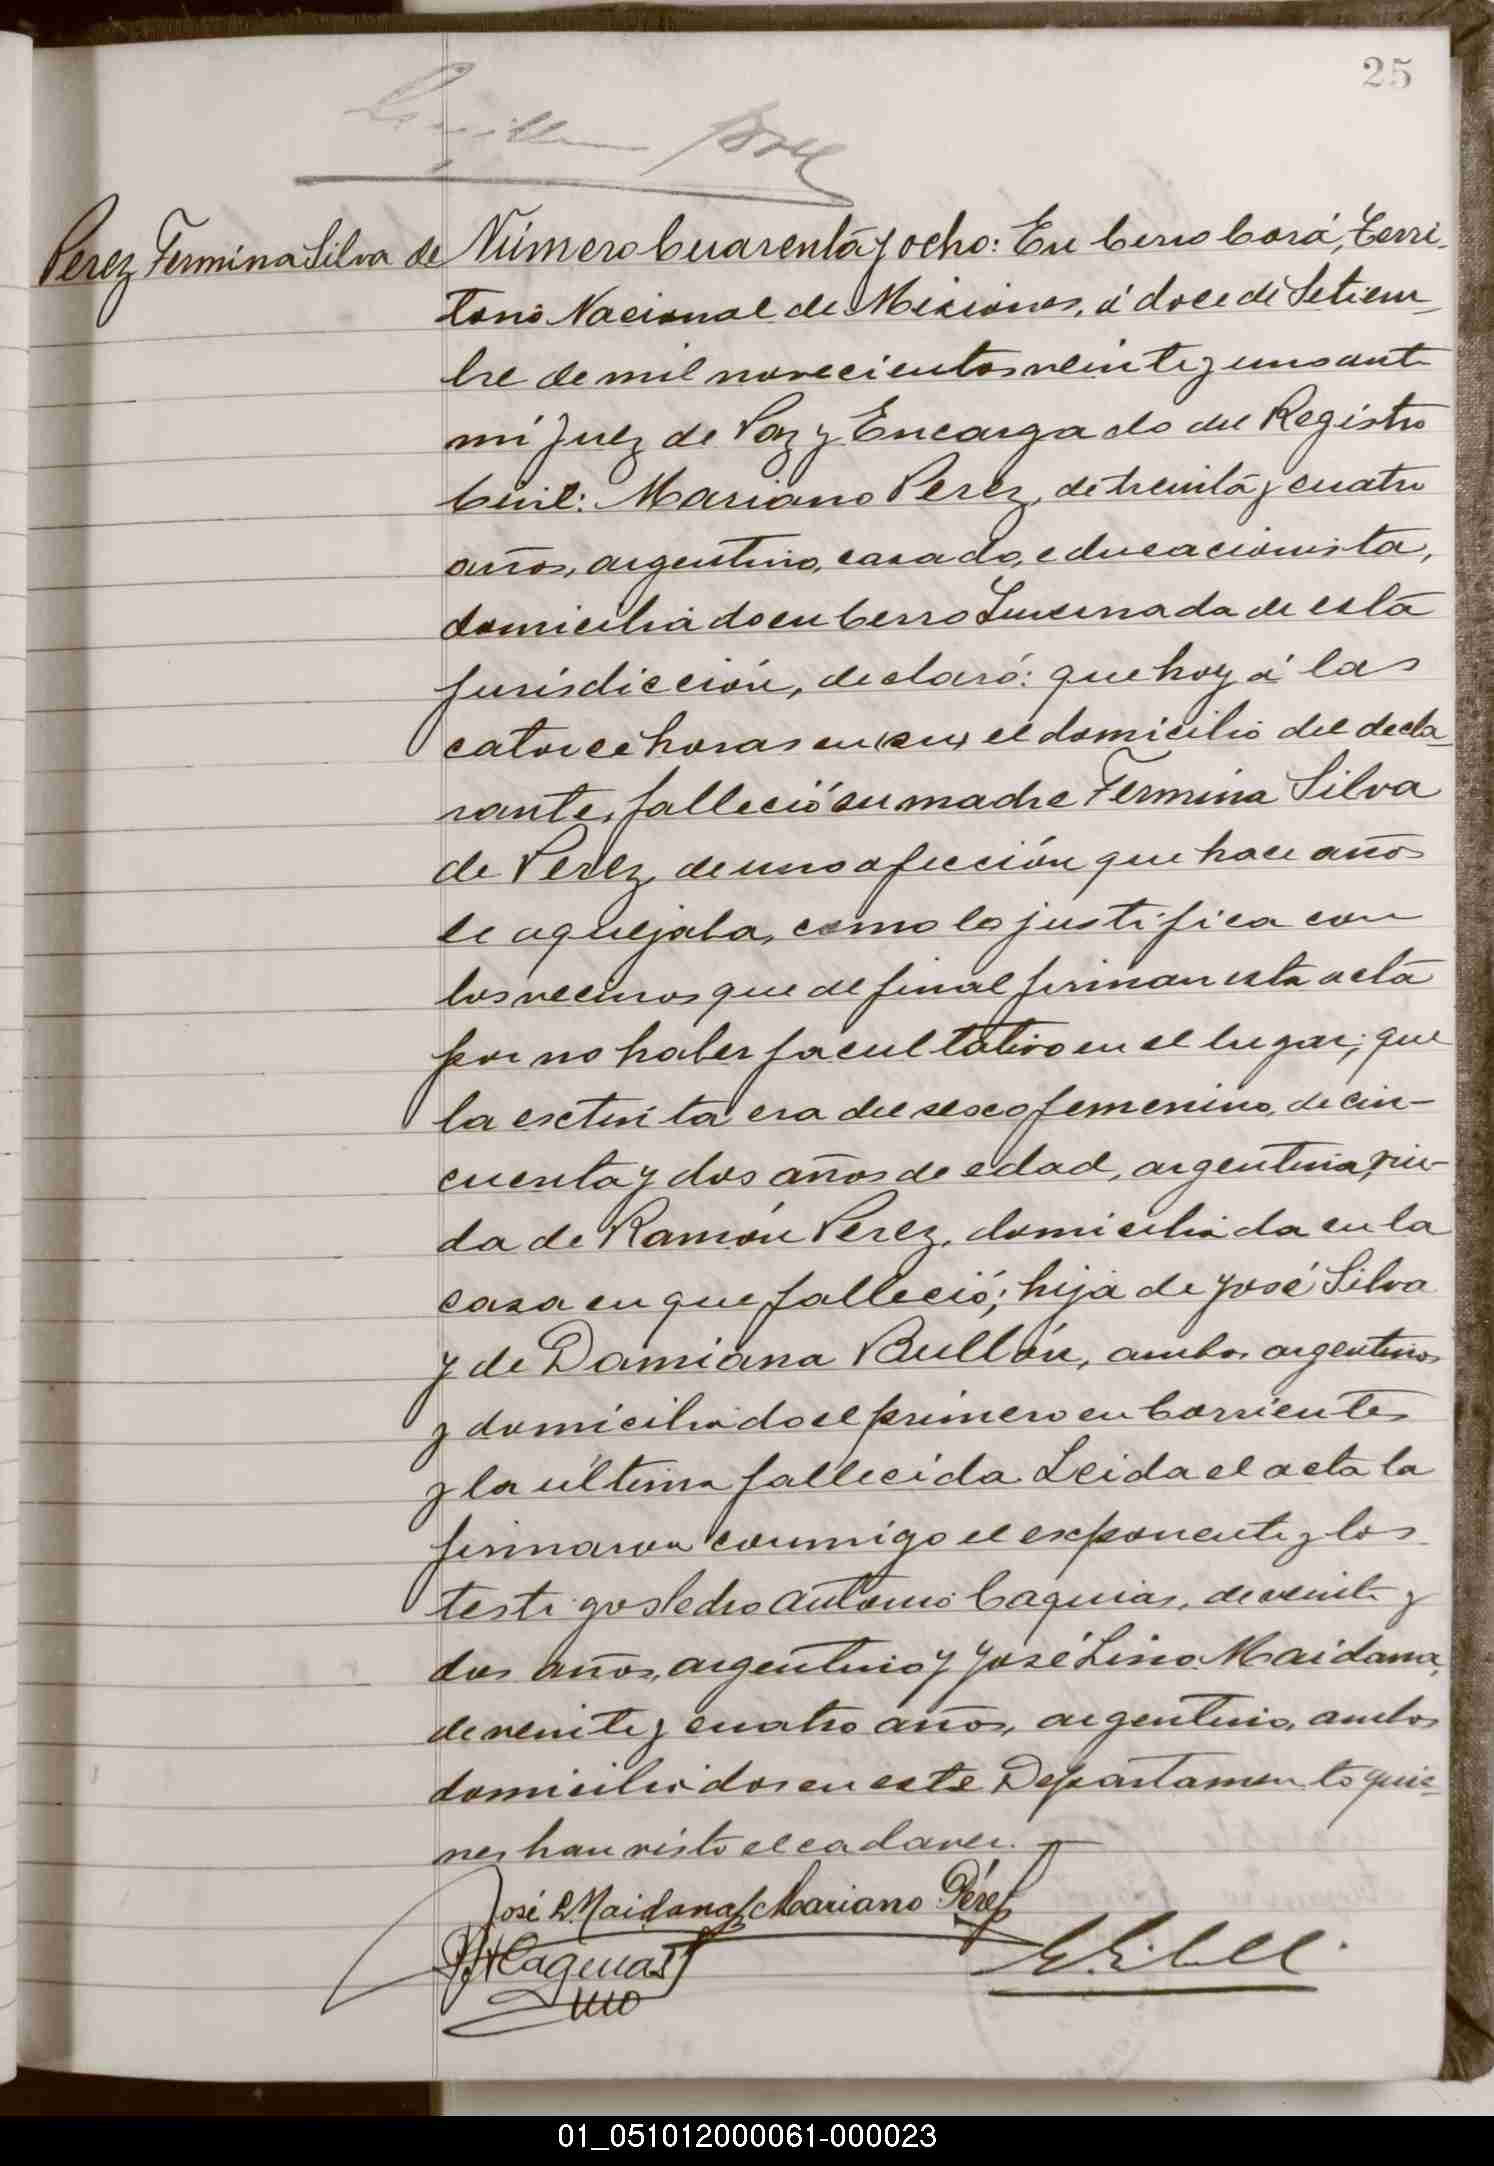 25
Perez Fermina Silva de
Número Cuarenta y ocho: En Cerro Corá, Terri-
torio Nacional de Misiones, á doce de Setiem-
bre de mil novecientos veinte y uno ante
mi Juez de Paz y Encargado del Registro
Civil: Mariano Perez, de treinta y cuatro
años, argentino, casado, educacionista,
domiciliado en Cerro de esta
jurisdicción, declaró: que hoy á las
catorce horas en (su) el domicilio del decla-
rante, falleció su madre Fermina Silva
de Perez, de una afección que hace años
le aquejaba, como lo justifica con
los vecinos que al final firman esta acta
por no haber facultativo en el lugar; que
la extinta era del sexo femenino, de cin-
cuenta y dos años de edad, argentina, viu-
da de Ramón Perez, domiciliada en la
casa en que falleció; hija de José Silva
y de Damiana Bullón, ambos argentinos
y domiciliado el primero en Corrientes
y la última fallecida. Leida el acta la
firmaron conmigo el exponente y los
testigos Pedro Antonio Caquias, de veinte y
dos años, argentino y José Lino Maidana,
de veinte y cuatro años, argentino, ambos
domiciliados en este Departamento quie-
nes han visto el cadaver.
José L. Maidana Mariano Pérez
P. A. Caquias
01_051012000061-000023